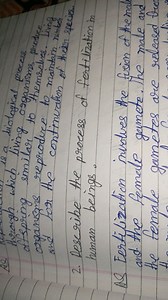 is a biological process
through which living organisms produce
offspring similar to themselves. Living
organisms reproduce to maintain
and for the continuation of their species
2. Describe the process of fertilization in
human beings.
Fertilization involves the fusion of the male
and the female gamete. The male and
the female gametes are released from